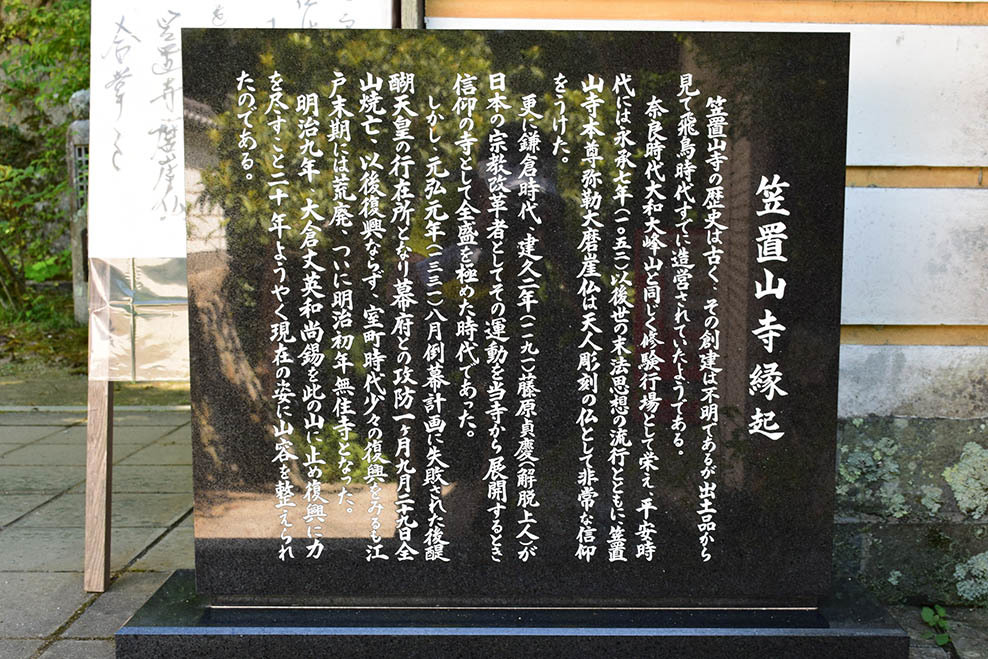 笠置山寺縁起
笠置山寺の歴史は古く、その創建は不明であるが出土品から
見て飛鳥時代すでに造営されていたようである。
奈良時代大和大峰山と同じく修験行場として栄え、平安時
代には永承七年(一〇五二)以後世の末法思想の流行とともに、笠置
山寺本尊弥勒大磨崖仏は天人彫刻の仏として非常な信仰
をうけた。
更に鎌倉時代、建久二年(一一九一)藤原貞慶(解脱上人)が
日本の宗教改革者としてその運動を当寺から展開するとき
信仰の寺として全盛を極めた時代であった。
しかし、元弘元年(一三三一)八月倒幕計画に失敗された後醍
醐天皇の行在所となり幕府との攻防一ヶ月九月二十九日全
山焼亡、以後復興ならず、室町時代少々の復興をみるも江
戸末期には荒廃、ついに明治初年無住寺となった。
明治九年、大倉丈英和尚錫を此の山に止め復興に力
を尽すこと二十年ようやく現在の姿に山容を整えられ
たのである。
笠置寺 磨崖仏
合掌